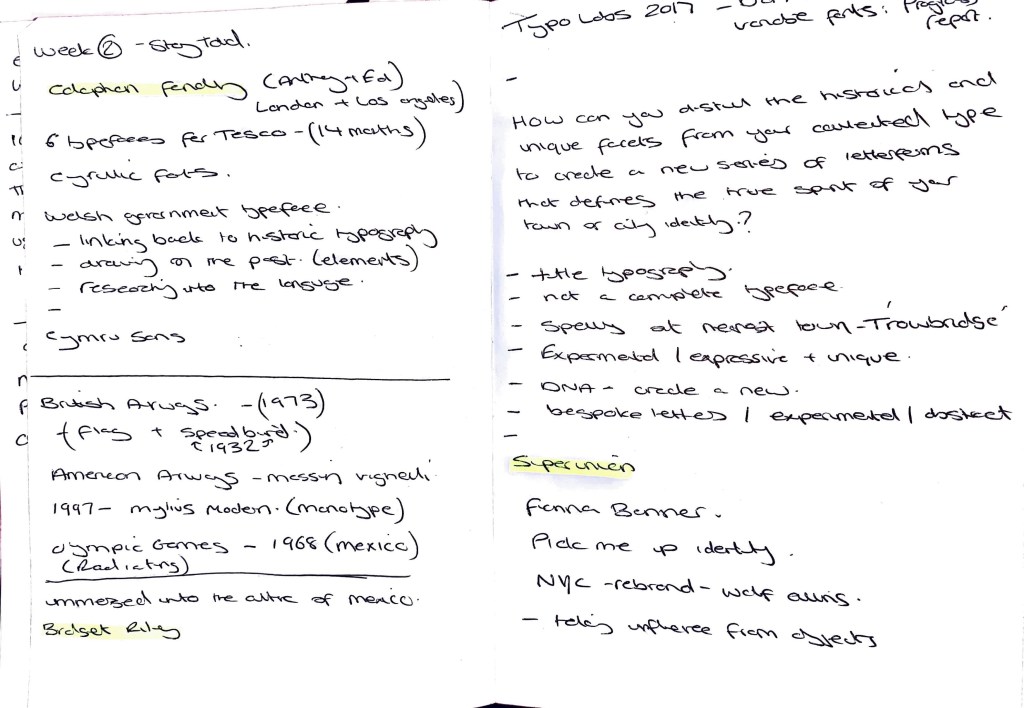 Week ② - Stay Tad.
Colophon Foundry (Anthony + Ed)
London + Los Angeles)
6 typefaces for Tesco - (14 months)
Cyrillic fonts.
Welsh government typeface.
- linking back to historic typography
- drawing on the past. (elements)
- researching into the language.
-
Cymru Sans
British Airways. - (1973)
(flag + speedbird.)
1932
American Airways - massimo vignelli
1997 - mylius modern. (monotype)
Olympic Games - 1968 (mexico)
(Radiating)
immersed into the culture of mexico.
Bridget Riley
Typo Labs 2017 -
variable fonts: Progress
report.
-
How can you distill the historical and
unique facets from your connected type
to create a new series of letterforms
that defines the true spirit of your
town or city identity?
- title typography.
- not a complete typeface.
- Spelling at nearest town - 'Trowbridge'
- Experimental / expressive + unique.
- DNA - create a new.
- bespoke letters / experimental / abstract
-
Superunion
Fiona Banner.
Pick me up identity.
NYC - rebrand - wolf ollins.
- taking influence from objects